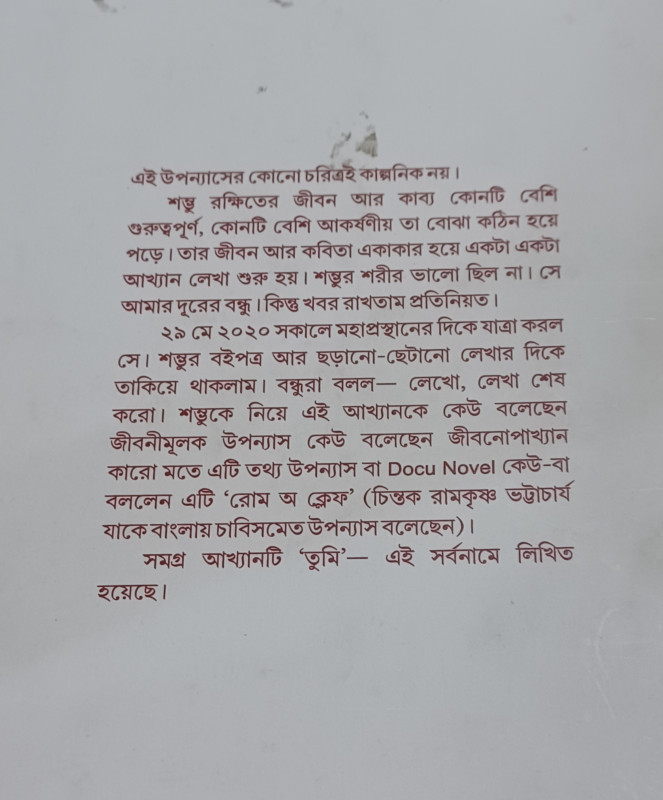 এই উপন্যাসের কোনো চরিত্রই কাল্পনিক নয়।
শম্ভু রক্ষিতের জীবন আর কাব্য কোনটি বেশি
গুরুত্বপূর্ণ, কোনটি বেশি আকর্ষণীয় তা বোঝা কঠিন হয়ে
পড়ে। তার জীবন আর কবিতা একাকার হয়ে একটা একটা
আখ্যান লেখা শুরু হয়। শম্ভুর শরীর ভালো ছিল না। সে
আমার দূরের বন্ধু। কিন্তু খবর রাখতাম প্রতিনিয়ত।
২৯ মে ২০২০ সকালে মহাপ্রস্থানের দিকে যাত্রা করল
সে। শম্ভুর বইপত্র আর ছড়ানো-ছেটানো লেখার দিকে
তাকিয়ে থাকলাম। বন্ধুরা বলল— লেখো, লেখা শেষ
করো। শম্ভুকে নিয়ে এই আখ্যানকে কেউ বলেছেন
জীবনীমূলক উপন্যাস কেউ বলেছেন জীবনোপাখ্যান
কারো মতে এটি তথ্য উপন্যাস বা Docu Novel কেউ-বা
বললেন এটি ‘রোম অ ক্লেফ’ (চিন্তক রামকৃষ্ণ ভট্টাচার্য
যাকে বাংলায় চাবিসমেত উপন্যাস বলেছেন)।
সমগ্র আখ্যানটি ‘তুমি’— এই সর্বনামে লিখিত
হয়েছে।